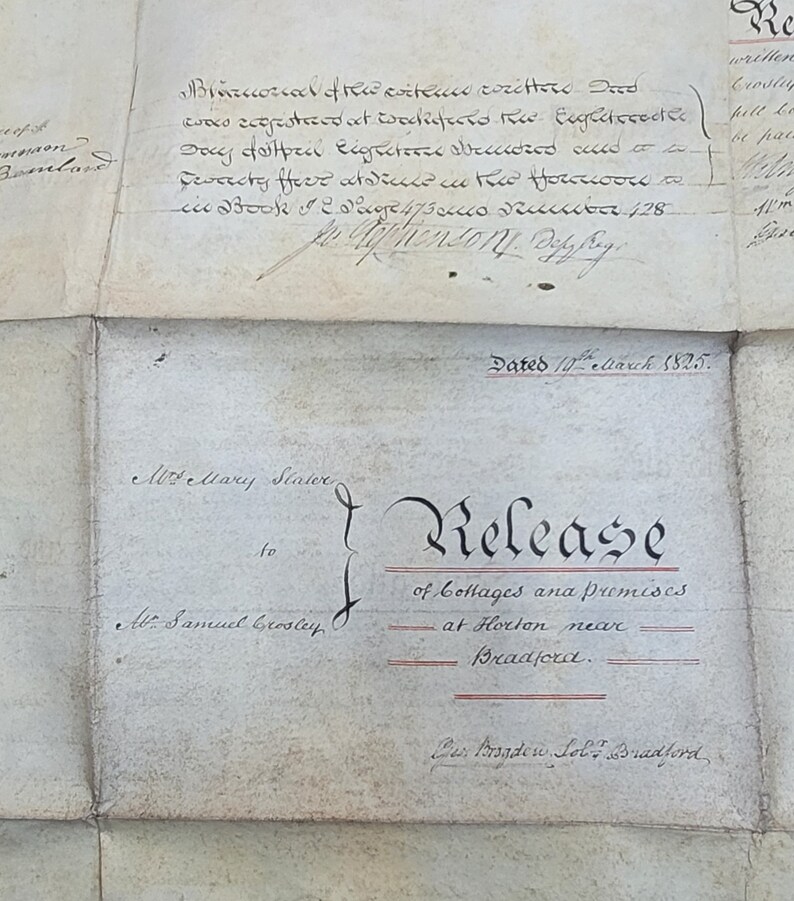 A Memorial of the within written Deed
was registered at Wakefield the Eighteenth
Day of April Eighteen Hundred and
Twenty five at Nine in the Forenoon
in Book I E Page 473 and Number 428
Stephenson Depy Regr
Dated 19th March 1825.
Mrs Mary Slater
to
Mr Samuel Crosley
Release
of Cottages and Premises
at Horton near
Bradford.
Brogden, Solr Bradford
Re
written
Crosley
be paid